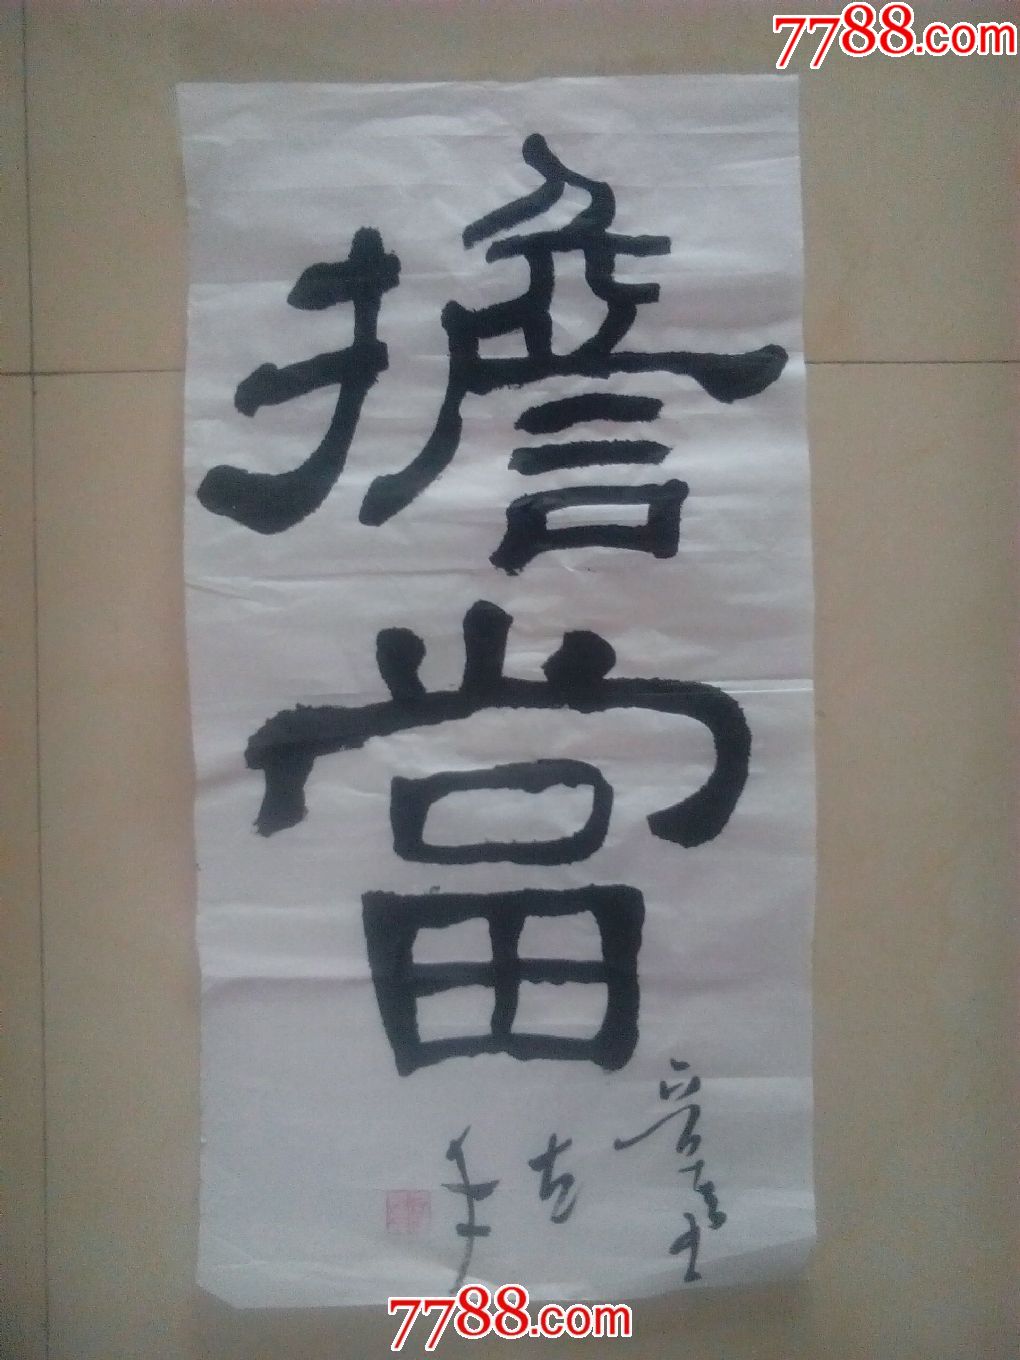 7788.com
擔當
左手
7788.com